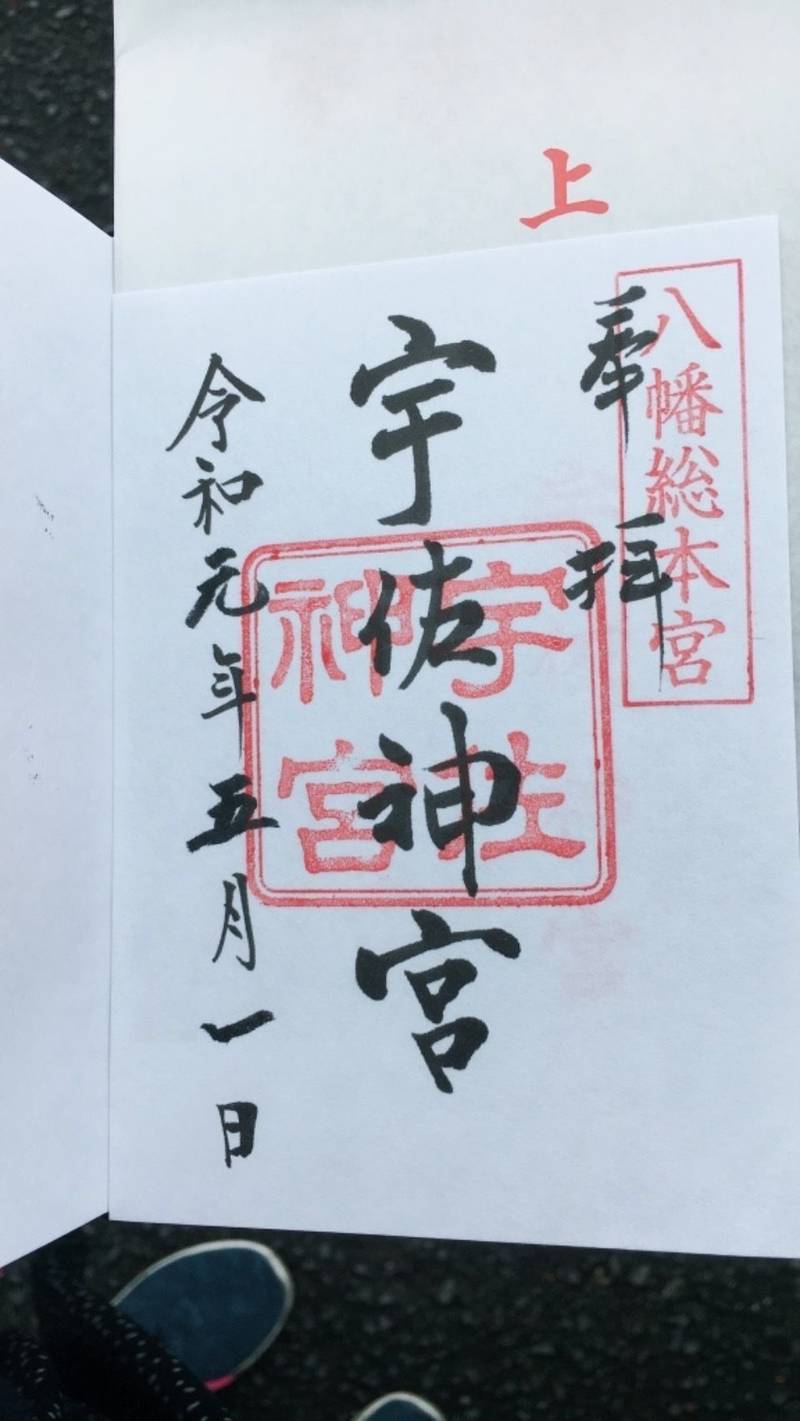 上
八幡総本宮
奉拝
宇佐神宮
宇佐神宮
令和元年五月一日